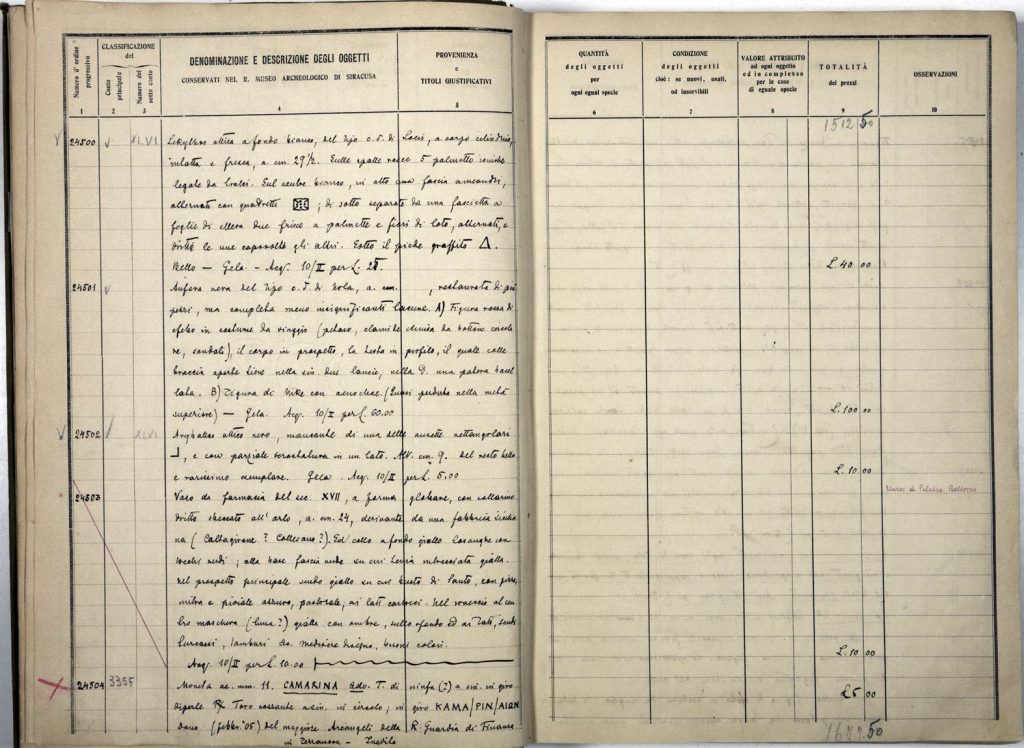 Numero d'ordine progressivo
CLASSIFICAZIONE
del
Conto principale
Numero del sotto conto
DENOMINAZIONE E DESCRIZIONE DEGLI OGGETTI
CONSERVATI NEL R. MUSEO ARCHEOLOGICO DI SIRACUSA
PROVENIENZA
e
TITOLI GIUSTIFICATIVI
1 2 3 4 5
24500 XLVI Lekythos attica a fondo bianco, del tipo c. d. di Locri, a corpo cilindrico,
intatta e fresca, a. cm. 29 1/2. Sulle spalle rosse 5 palmette
legate da Sul ventre bianco, in alto una fascia a meandri,
alternati con quadretti ; di sotto separate da una fascietta a
foglie di ellera due frisce a palmette e fiori di loto, alternati, e
diritte le une capovolte gli altri. Sotto il piede graffito Δ.
Bello — Gela. - Acq. 10/II per L. 25.
24501 Anfora nera del tipo c. d. di Nola, a. cm. , restaurata di più
pezzi, ma completa meno insignificanti lacune. A) Figura rossa di
efebo in costume da viaggio (petaso, clamide chiusa da bottone circola
re, sandali), il corpo in prospetto, la testa in profilo, il quale colle
braccia aperte tiene nella sin. due lancie, nella d. una patera bacel
lata. B) Figura di Nike con oenochoe. (Quasi perduta nella metà
superiore) — Gela. Acq. 10/II per L. 60.00
24502 XLVI Aryballos attico nero, mancante di una delle ansette rettangolari
, e con parziale scrostatura in un lato. Alt. cm. 9. del resto bello
e rarissimo esemplare. Gela. Acq. 10/II per L. 5.00
24503 Vaso da farmacia del sec. XVII, a forma globare, con collarino
dritto sbeccato all'orlo, a. cm. 24, derivante da una fabbrica sicilia
na (Caltagirone? Collesano?). Sul collo a fondo giallo losanghe con
verdi; alla base fascia verde su cui tenia intrecciata gialla.
Nel prospetto principale scudo giallo su cui busto di Santo, con
mitra e piviale azzurro, pastorale; ai lati cartocci. Nel rovescio al cen
tro maschera (luna?) gialla con ombre, sullo sfondo ed ai lati, scudi
turcassi, tamburi ec. Mediocre disegno, buoni colori.
Acq. 10/II per L. 10.00
24504 3355 Moneta ae. mm. 11. CAMARINA adv. T. di ninfa (?) a sin. in giro
Toro cozzante a sin. in circolo; in giro KAMA/PIN/AION
Dono (febbr. '05) del maggiore Arcangeli della R. Guardia di Finanza
in Terranova - Inedita
QUANTITÀ
degli oggetti
per
ogni egual specie
CONDIZIONE
degli oggetti
cioè: se nuovi, usati,
od inservibili
VALORE ATTRIBUITO
ad ogni oggetto
ed in complesso
per le cose
di eguale specie
TOTALITÀ
dei prezzi
OSSERVAZIONI
6 7 8 9 10
1512 50
L. 40 00
L. 100 00
L. 10 00
Museo di Palazzo Bellomo
L. 10 00
£5 00
1677.50